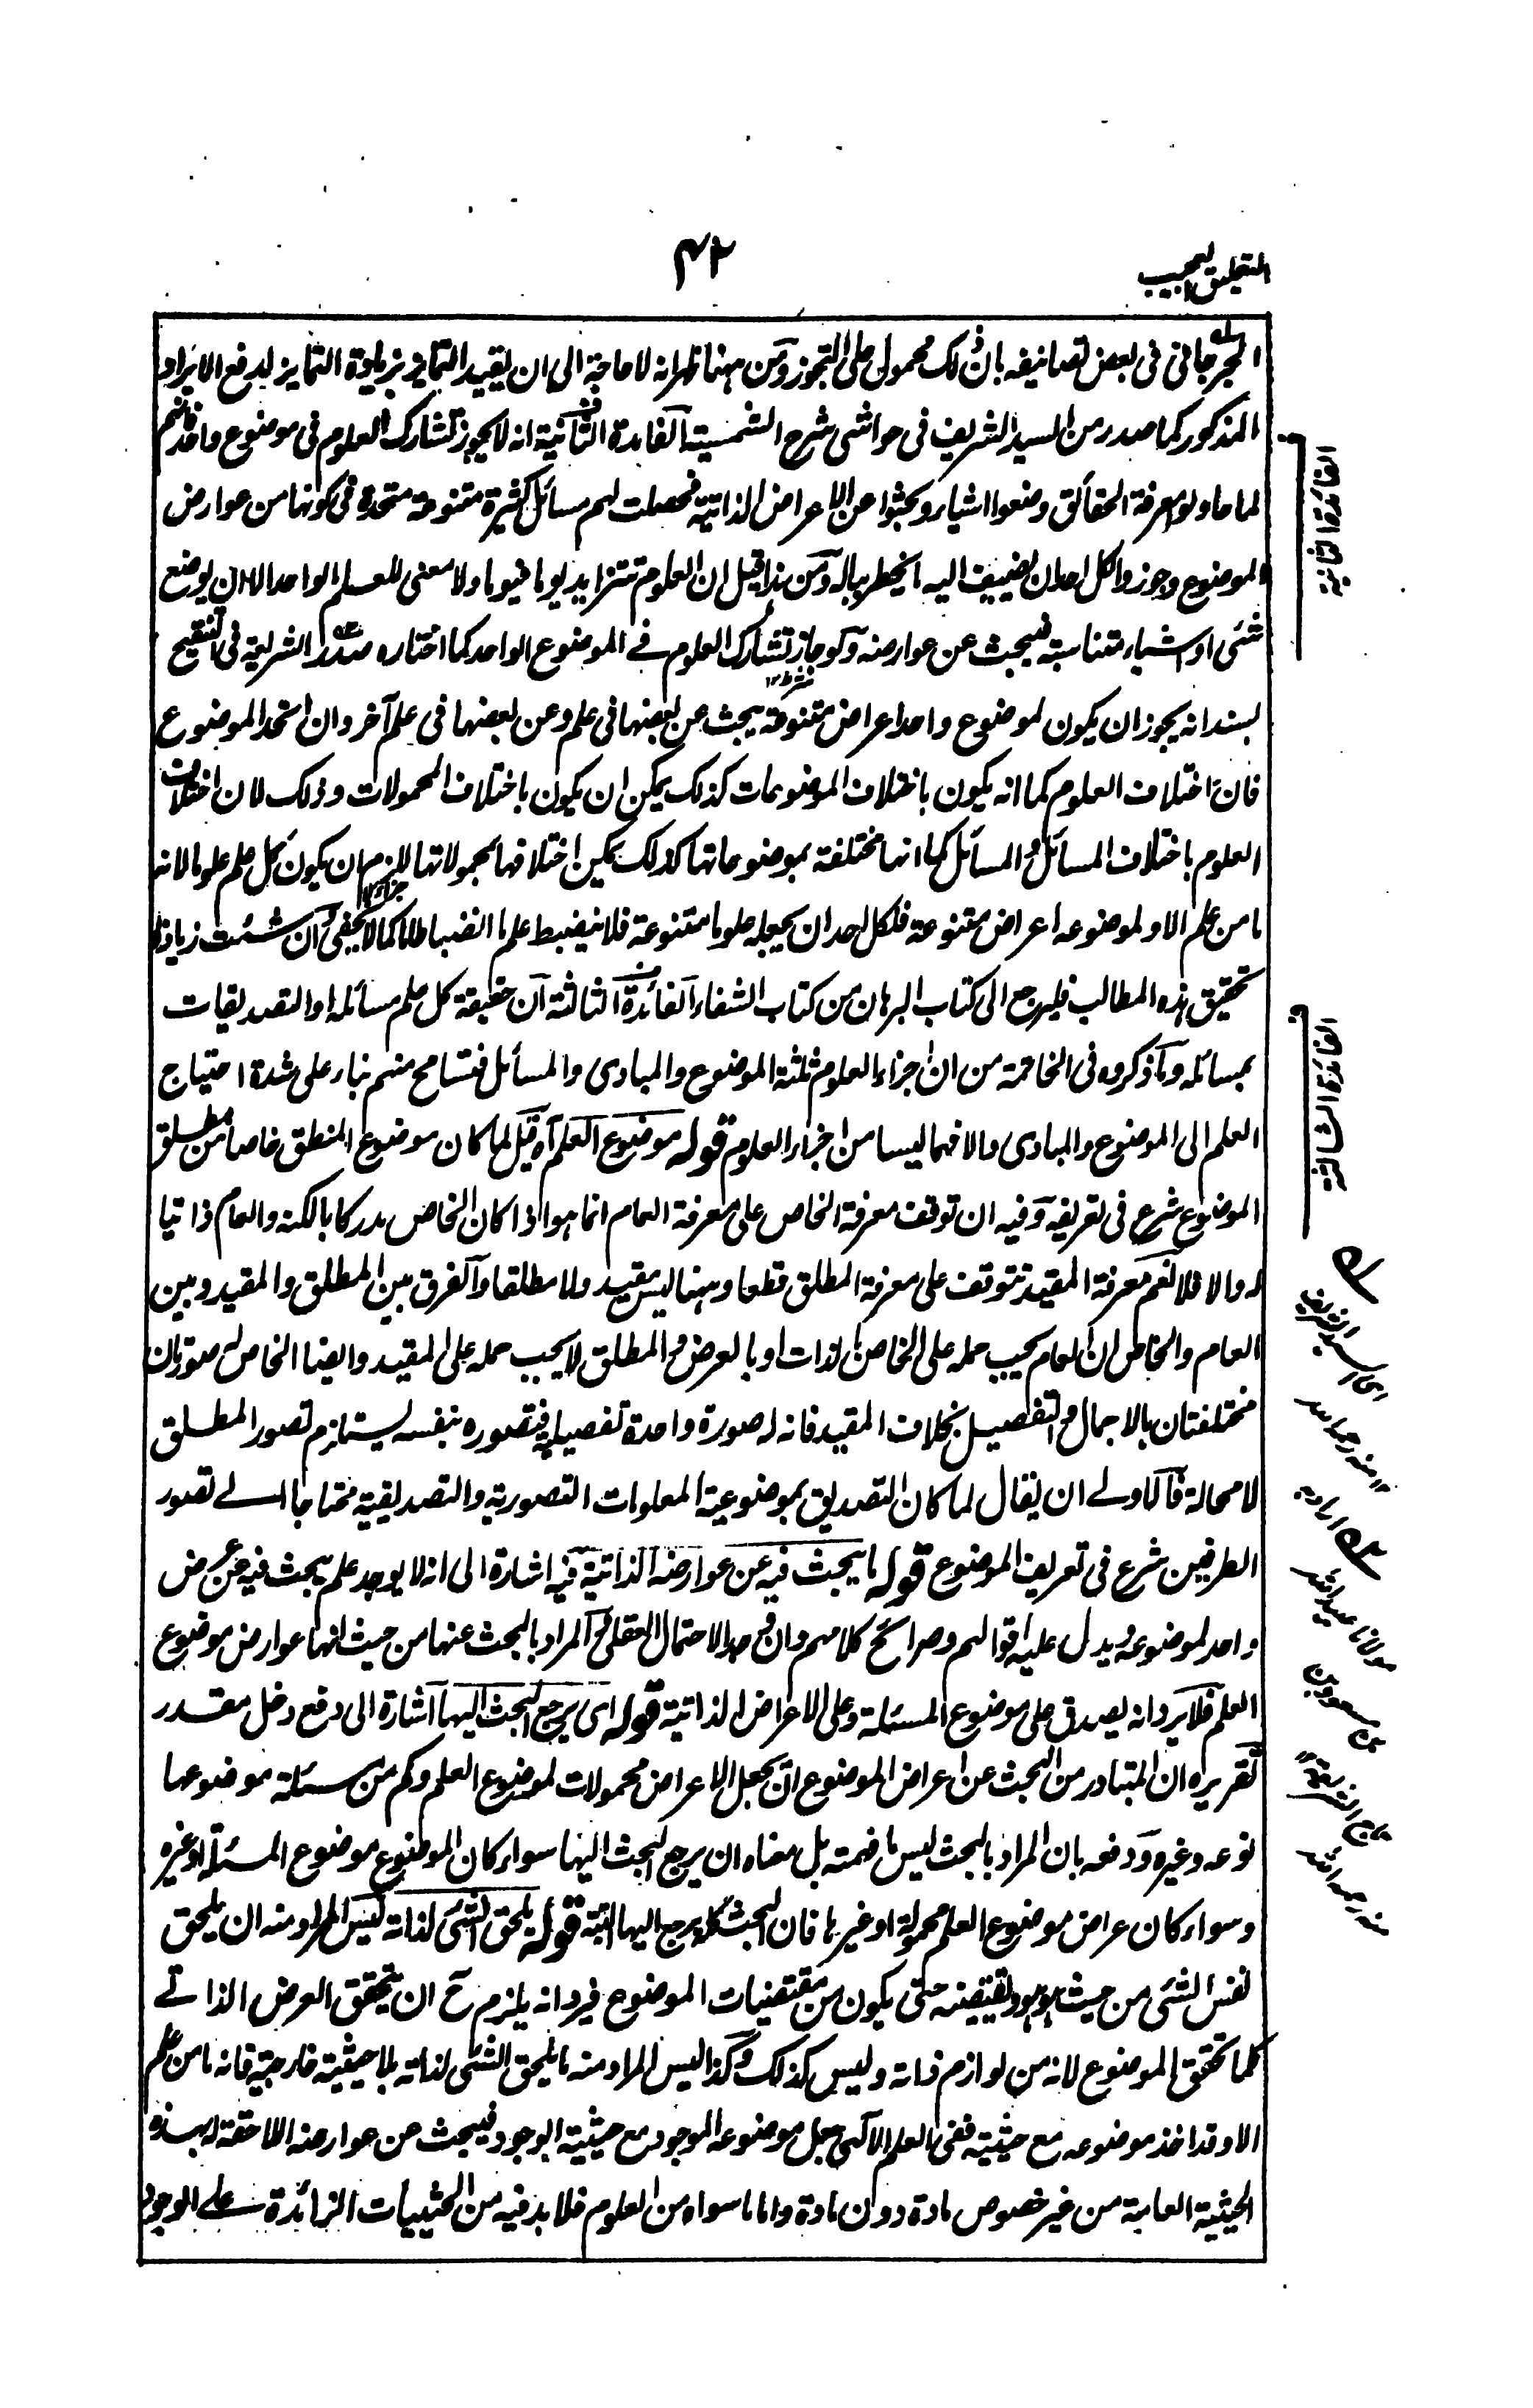 التعليق العجيب
۴۲
الجرجانى فى بعض تصانيفه بان ذلك محمول على التجوز ومن ههنا ظهر انه لا حاجة الى ان يقيد التمايز بزيادة التمايز لدفع الايراد
المذكور كما صدر من السيد الشريف فى حواشى شرح الشمسية الفائدة الثانية انه لا يجوز تشارك العلوم فى موضوع واحد فانهم
لما حاولوا معرفة الحقائق وضعوا اشياء وبحثوا عن الاعراض الذاتية فحصلت لهم مسائل كثيرة متنوعة متحدة فى كونها من عوارض
الموضوع وجوزوا لكل احد ان يضيف اليه ما يخطر بباله ومن هذا قيل ان العلوم تتزايد يوما فيوما ولا معنى للعلم الواحد الا ان يوضع
شئ او اشياء متناسبة فيبحث عن عوارضه ولو جاز تشارك العلوم فى الموضوع الواحد كما اختاره صدر الشريعة فى التنقيح
شرط ١٢
بسند انه يجوز ان يكون لموضوع واحد اعراض متنوعة يبحث عن بعضها فى علم وعن بعضها فى علم آخر وان اتحد الموضوع
فان اختلاف العلوم كما انه يكون باختلاف الموضوعات كذلك يمكن ان يكون باختلاف المحمولات وذلك لان اختلاف
العلوم باختلاف المسائل والمسائل كما انها مختلفة بموضوعاتها كذلك يمكن اختلافها بمحمولاتها للزم ان يكون كل علم علوما لانه
جزاء ١٢
ما من علم الا ولموضوعه اعراض متنوعة فلكل احد ان يجعله علوما متنوعة فلا ينضبط علم ما انضباطا كما لا يخفى آن شئت زيادة
تحقيق هذه المطالب فليرجع الى كتاب البرهان من كتاب الشفاء الفائدة الثالثة ان حقيقة كل علم مسائله او التصديقات
بمسائله وما ذكروه فى الخاتمة من ان اجزاء العلوم ثلثة الموضوع والمبادى والمسائل فتسامح منهم بناء على شدة احتياج
العلم الى الموضوع والمبادى والا فهما ليسا من اجزاء العلوم قوله موضوع العلم آه قيل لما كان موضوع المنطق خاصا من مطلق
الموضوع شرع فى تعريفه وفيه ان توقف معرفة الخاص على معرفة العام انما هو اذا كان الخاص مدركا بالكنه والعام ذاتيا
له والا فلا نعم معرفة المقيد تتوقف على معرفة المطلق قطعا وههنا ليس مقيد ولا مطلقا والفرق بين المطلق والمقيد وبين
العام والخاص ان العام يجب حمله على الخاص بالذات او بالعرض والمطلق لا يجب حمله على المقيد وايضا الخاص له صورتان
مختلفتان بالاجمال والتفصيل بخلاف المقيد فانه له صورة واحدة تفصيلية فتصوره بنفسه يستلزم تصور المطلق
لا محالة فالاولى ان يقال لما كان التصديق بموضوعية المعلومات التصورية والتصديقية محتاجا الى تصور
الطرفين شرع فى تعريف الموضوع قوله ما يبحث فيه عن عوارضه الذاتية فيه اشارة الى انه لا يوجد علم يبحث فيه عن عرض
واحد لموضوعه ويدل عليه اقوالهم وصرائح كلامهم وان وجد الاحتمال العقلى والمراد بالبحث عنها من حيث انها عوارض موضوع
العلم فلا يرد انه يصدق على موضوع المسئلة وعلى الاعراض الذاتية قوله اى يرجع البحث اليها اشارة الى دفع دخل مقدر
تقريره ان المتبادر من البحث عن اعراض الموضوع ان يجعل الاعراض محمولات لموضوع العلم وكم من مسئلة موضوعها
نوعه وغيره ودفعه بان المراد بالبحث ليس ما فهمته بل معناه ان يرجع البحث اليها سواء كان الموضوع موضوع المسئلة او غيره
وسواء كان عراض موضوع العلم محمولة او غيرها فان البحث كله يرجع اليها البتة قوله يلحق الشئ لذاته ليس المراد منه ان يلحق
نفس الشئ من حيث هو هو ويقتضيه حتى يكون من مقتضيات الموضوع فيرد انه يلزم ح ان يتحقق العرض الذاتى
كلما تحقق الموضوع لانه من لوازم ذاته وليس كذلك وكذا ليس المراد منه ما يلحق الشئ لذاته بلا حيثية خارجية فانه ما من علم
الا وقد اخذ موضوعه مع حيثية ففى العلم الآلهى جعل موضوعه الموجود مع حيثية الوجود فيبحث عن عوارضه اللاحقة له بهذه
الحيثية العامة من غير خصوص مادة دون مادة واما ما سواه من العلوم فلا بد فيه من الحيثيات الزائدة على الوجود
الفائدة الثانية
الفائدة الثالثة
له
اى السيد الشريف
١٢ منه رحمه الله
له اراد به
مولانا عبيد الله
بن مسعود بن
تاج الشريعة ١٢
منه رحمه الله